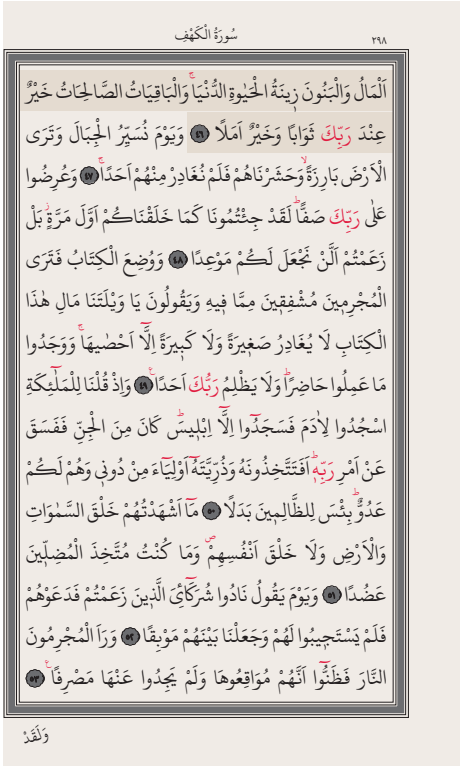 سُورَةُ الْكَهْفِ
٢٩٨
اَلْمَالُ وَالْبَنُونَ زِينَةُ الْحَيٰوةِ الدُّنْيَاۚ وَالْبَاقِيَاتُ الصَّالِحَاتُ خَيْرٌ
عِنْدَ رَبِّكَ ثَوَابًا وَخَيْرٌ اَمَلًا ٤٦ وَيَوْمَ نُسَيِّرُ الْجِبَالَ وَتَرَى
الْاَرْضَ بَارِزَةًۙ وَحَشَرْنَاهُمْ فَلَمْ نُغَادِرْ مِنْهُمْ اَحَدًاۚ ٤٧ وَعُرِضُوا
عَلٰى رَبِّكَ صَفًّاۜ لَقَدْ جِئْتُمُونَا كَمَا خَلَقْنَاكُمْ اَوَّلَ مَرَّةٍۘ بَلْ
زَعَمْتُمْ اَلَّنْ نَجْعَلَ لَكُمْ مَوْعِدًا ٤٨ وَوُضِعَ الْكِتَابُ فَتَرَى
الْمُجْرِمِينَ مُشْفِقِينَ مِمَّا فِيهِ وَيَقُولُونَ يَا وَيْلَتَنَا مَالِ هٰذَا
الْكِتَابِ لَا يُغَادِرُ صَغِيرَةً وَلَا كَبِيرَةً اِلَّٓا اَحْصٰيهَاۚ وَوَجَدُوا
مَا عَمِلُوا حَاضِرًاۜ وَلَا يَظْلِمُ رَبُّكَ اَحَدًا۟ ٤٩ وَاِذْ قُلْنَا لِلْمَلٰٓئِكَةِ
اسْجُدُوا لِاٰدَمَ فَسَجَدُٓوا اِلَّٓا اِبْلِيسَۜ كَانَ مِنَ الْجِنِّ فَفَسَقَ
عَنْ اَمْرِ رَبِّهِۜ اَفَتَتَّخِذُونَهُ وَذُرِّيَّتَهُٓ اَوْلِيَٓاءَ مِنْ دُونِي وَهُمْ لَكُمْ
عَدُوٌّۜ بِئْسَ لِلظَّالِمِينَ بَدَلًا ٥٠ مَٓا اَشْهَدْتُهُمْ خَلْقَ السَّمٰوَاتِ
وَالْاَرْضِ وَلَا خَلْقَ اَنْفُسِهِمْۖ وَمَا كُنْتُ مُتَّخِذَ الْمُضِلِّينَ
عَضُدًا ٥١ وَيَوْمَ يَقُولُ نَادُوا شُرَكَٓائِيَ الَّذِينَ زَعَمْتُمْ فَدَعَوْهُمْ
فَلَمْ يَسْتَجِيبُوا لَهُمْ وَجَعَلْنَا بَيْنَهُمْ مَوْبِقًا ٥٢ وَرَاَ الْمُجْرِمُونَ
النَّارَ فَظَنُّٓوا اَنَّهُمْ مُوَاقِعُوهَا وَلَمْ يَجِدُوا عَنْهَا مَصْرِفًا۟ ٥٣
وَلَقَدْ